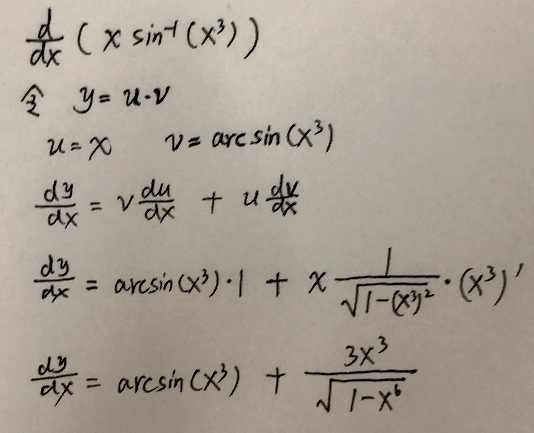 d/dx ( x sin⁻¹ (x³) )
令 y = u·v
u = x v = arc sin (x³)
dy/dx = v du/dx + u dv/dx
dy/dx = arcsin(x³)·1 + x 1/√(1-(x³)²) · (x³)'
dy/dx = arcsin(x³) + 3x³/√(1-x⁶)